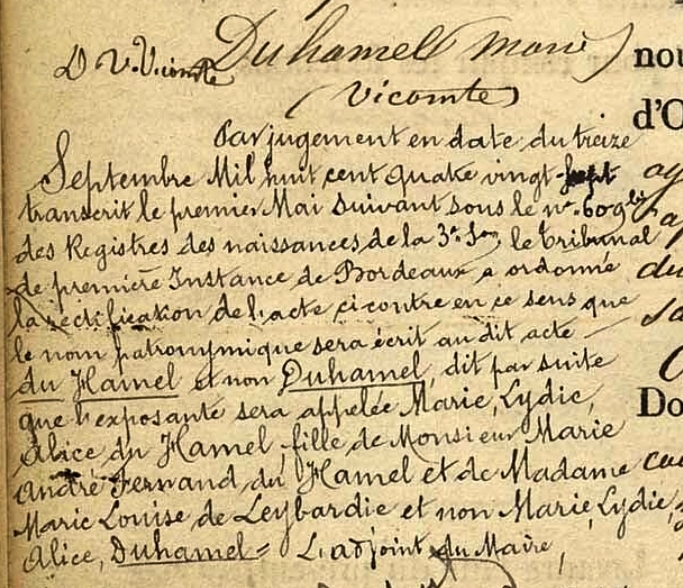 D V. Vicomte
Duhamel (Marie)
(Vicomte)
nou
d'O
Par jugement en date du treize
Septembre Mil huit cent quatre vingt sept
transcrit le premier Mai suivant sous le n° 609 bis
des Registres des naissances de la 3e Son, le tribunal
de première Instance de Bordeaux a ordonné
du
la rectification de l'acte ci contre en ce sens que
sa
le nom patronymique sera écrit au dit acte
du Hamel et non Duhamel, dit par suite
Do
que l'exposante sera appelée Marie, Lydie,
Alice du Hamel, fille de Monsieur Marie
André Fernand du Hamel et de Madame
Marie Louise de Leybardie et non Marie, Lydie,
Alice, Duhamel = L'adjoint du Maire,